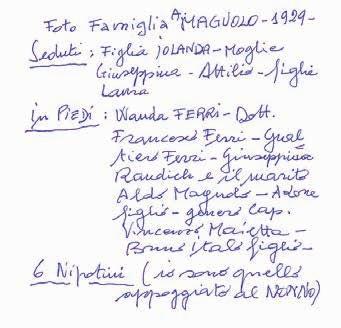 Foto Famiglia A. MAGUOLO - 1929 -
Seduti : Figlia IOLANDA - Moglie
Giuseppina - Attilio - figlia
Laura
in PIEDI : Wanda FERRI - Dott.
Francesco Ferri - Gual
tiero Ferri - Giuseppina
Raudich e il marito
Aldo Maguolo - Adone
figlio - genero Cap.
Vincenzo Maietta -
Bruno Italo figlio -
6 Nipotini ( io sono quello
appoggiato al NONNO )